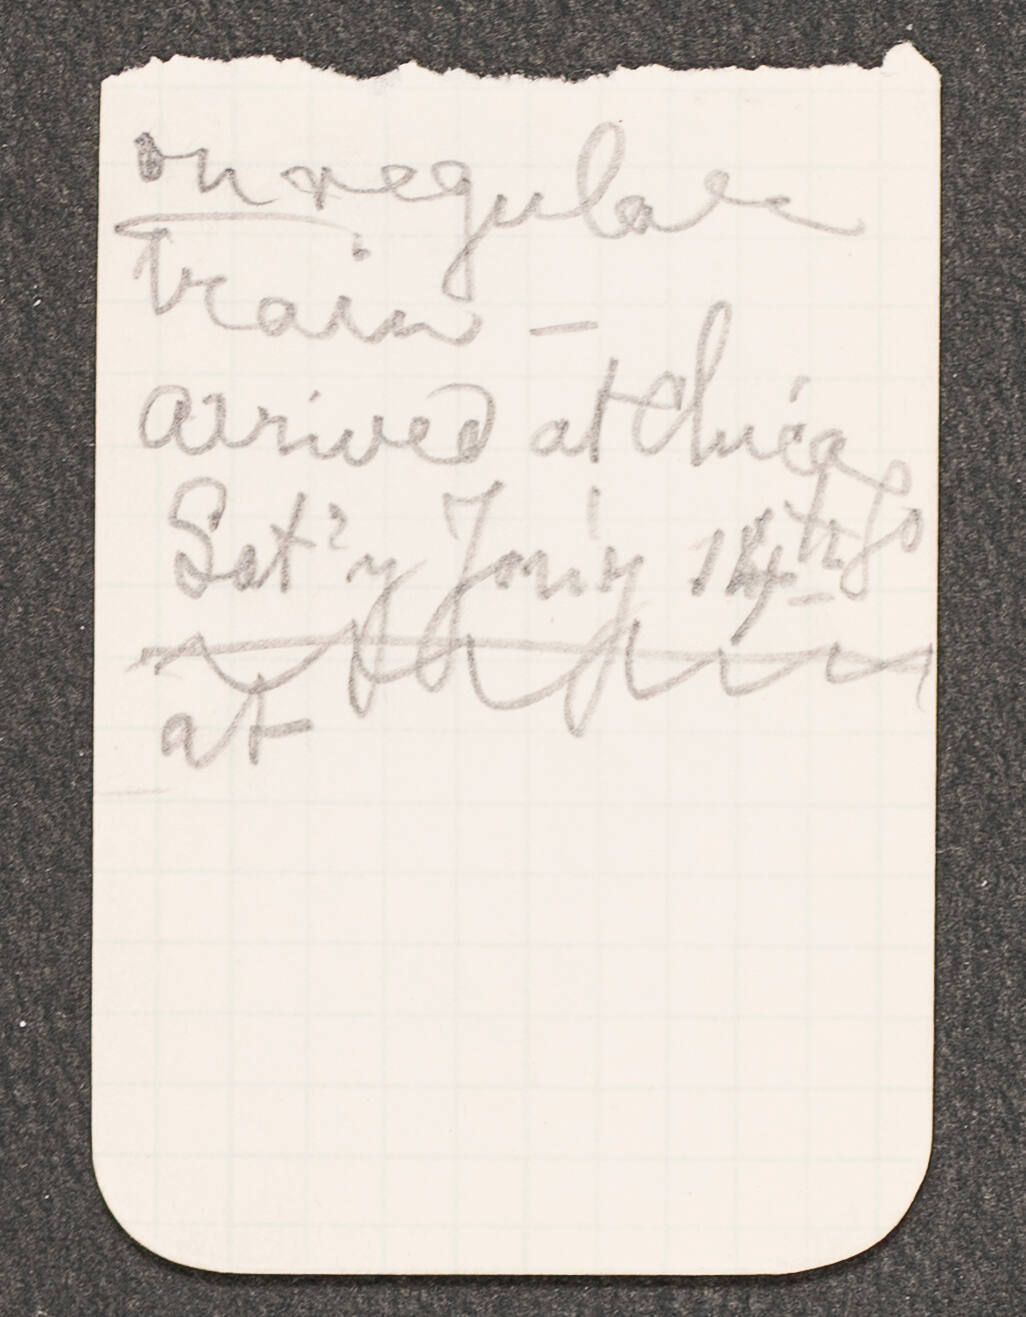 on regular
train —
arrived at Chicago
Sat'y Jan'y 14th
at